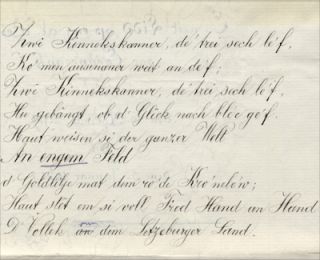 Zwé Kinnekskanner, dé trei sech léf,
Ko'men ausenaner weit an déf;
Zwé Kinnekskanner, dé trei sech léf,
Hu gebangt, ob d'Gléck nach bléo géf.
Haut weisen si der ganzer Welt
An engem Feld
d'Goldlilje mat dem ro'de Kro'nelew;
Haut stét em si voll Fred Hand an Hand
D'Vollek an dem Letzeburger Land.